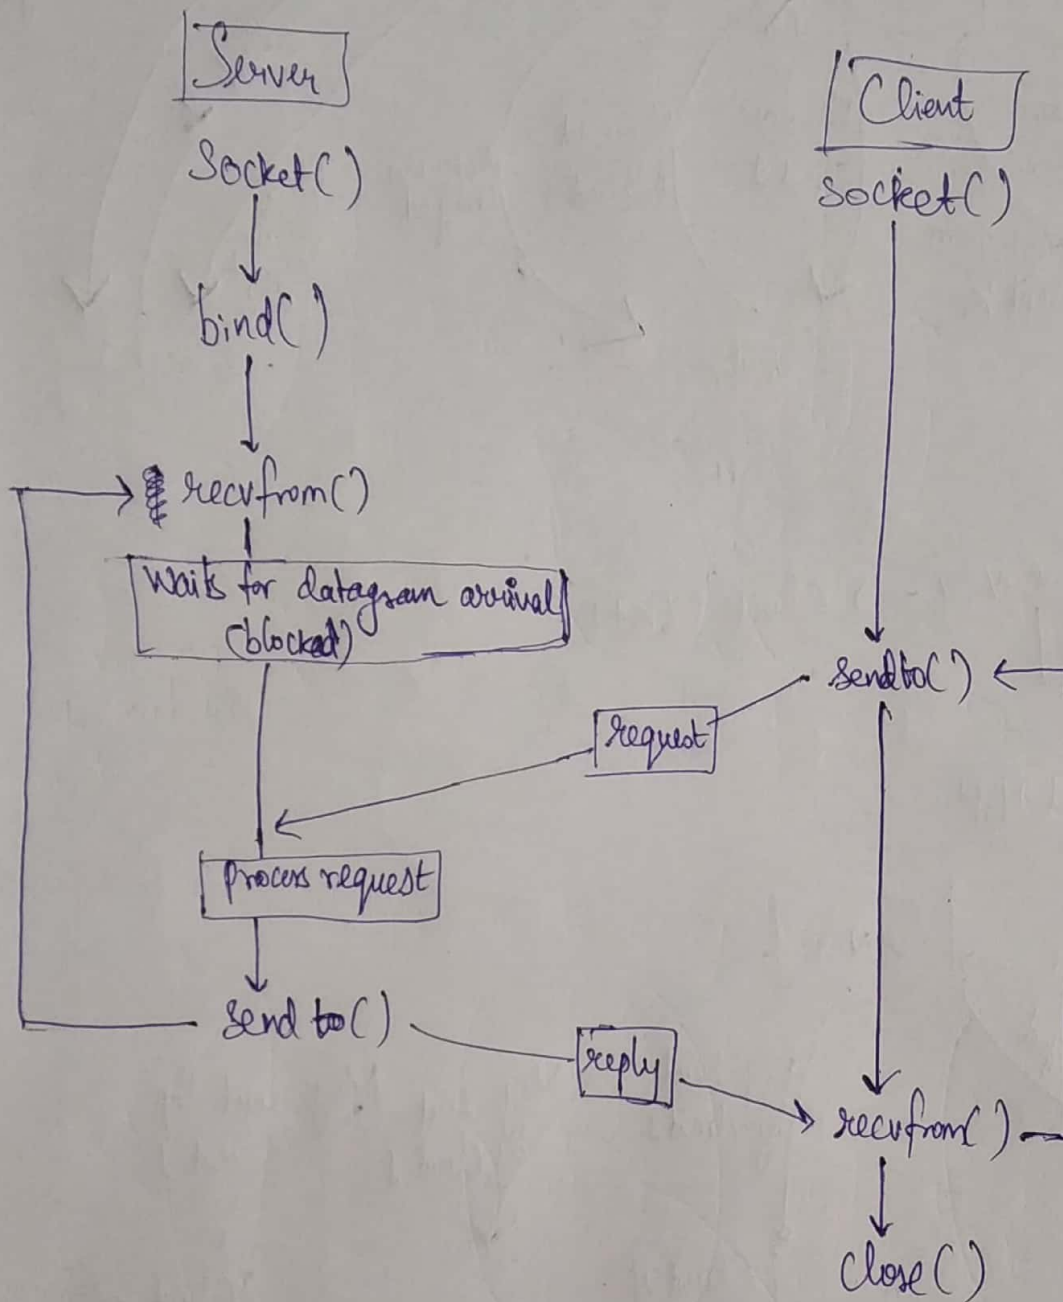 Server
Socket()
bind()
recvfrom()
Waits for datagram arrival
(blocked)
process request
send to()
Client
socket()
sendto()
request
reply
recvfrom()
close()